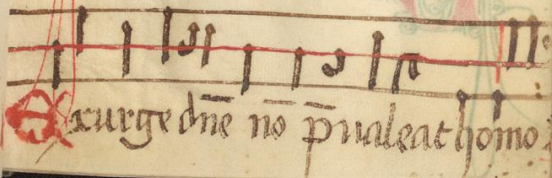 Exurge dn̄e nō p̄ualeat homo